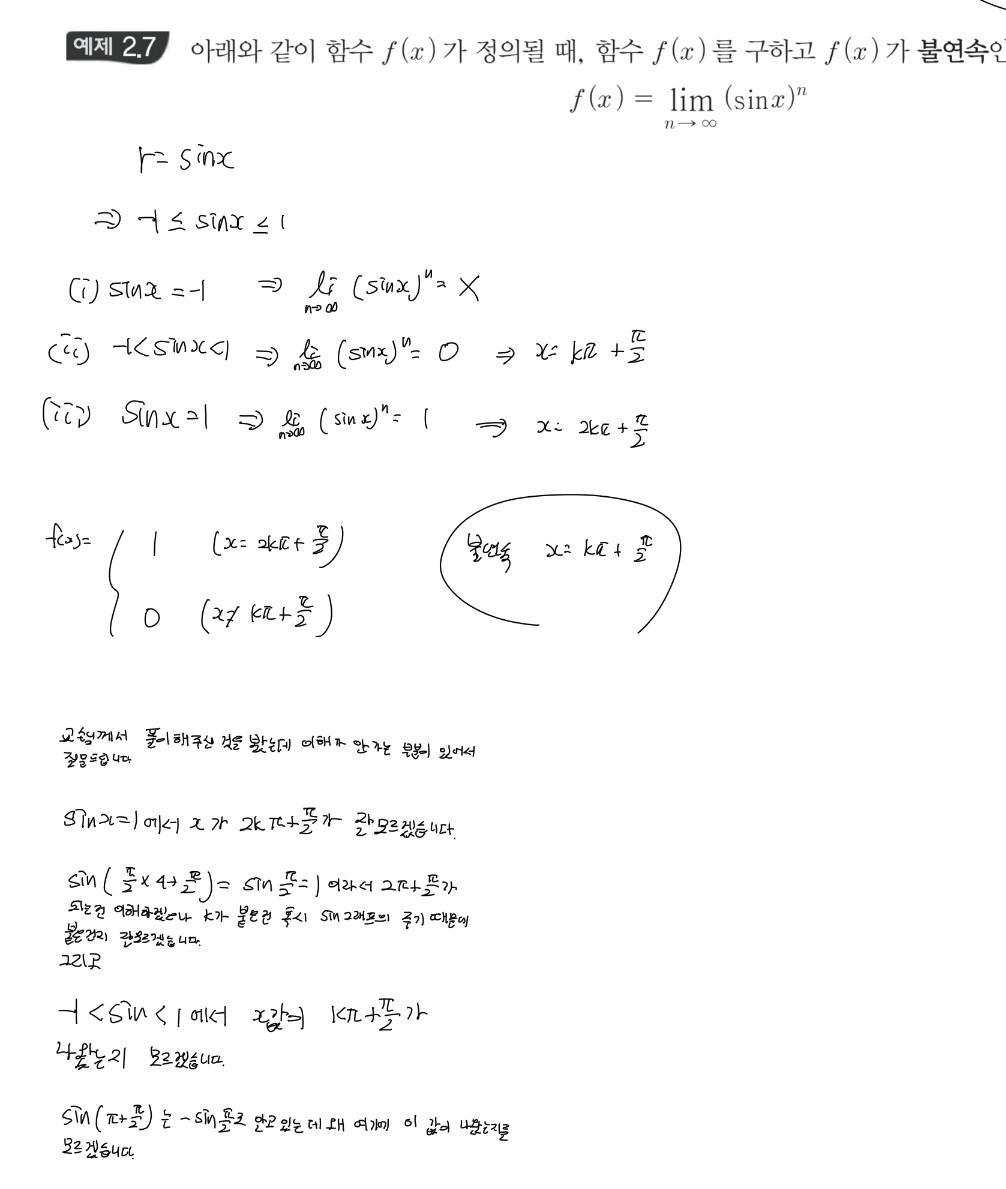 예제 2.7 아래와 같이 함수 f(x)가 정의될 때, 함수 f(x)를 구하고 f(x)가 불연속인
f(x) = lim_{n→∞} (sinx)^n
r = sinx
⇒ -1 ≤ sinx ≤ 1
(i) sinx = -1 ⇒ lim_{n→∞} (sinx)^n = X
(ii) -1<sinx<1 ⇒ lim_{n→∞} (sinx)^n = 0 ⇒ x = kπ + π/2
(iii) sinx = 1 ⇒ lim_{n→∞} (sinx)^n = 1 ⇒ x = 2kπ + π/2
f(x) = { 1 (x = 2kπ + π/2)
0 (x ≠ kπ + π/2)
불연속 x = kπ + π/2
교수님께서 풀이해주신 것을 봤는데 이해가 안가는 부분이 있어서
질문드립니다
sinx=1에서 x가 2kπ+π/2가 잘 모르겠습니다.
sin(π/2×4+π/2) = sin π/2 = 1 이라서 2π+π/2가
되는건 이해하겠으나 k가 붙은건 혹시 sin그래프의 주기 때문에
붙은건지 잘모르겠습니다.
그리고
-1 < sin < 1 에서 x값이 kπ+π/2가
나왔는지 모르겠습니다.
sin(π+π/2)는 -sin π/2로 알고 있는데 왜 여기에 이 값이 나왔는지를
모르겠습니다.